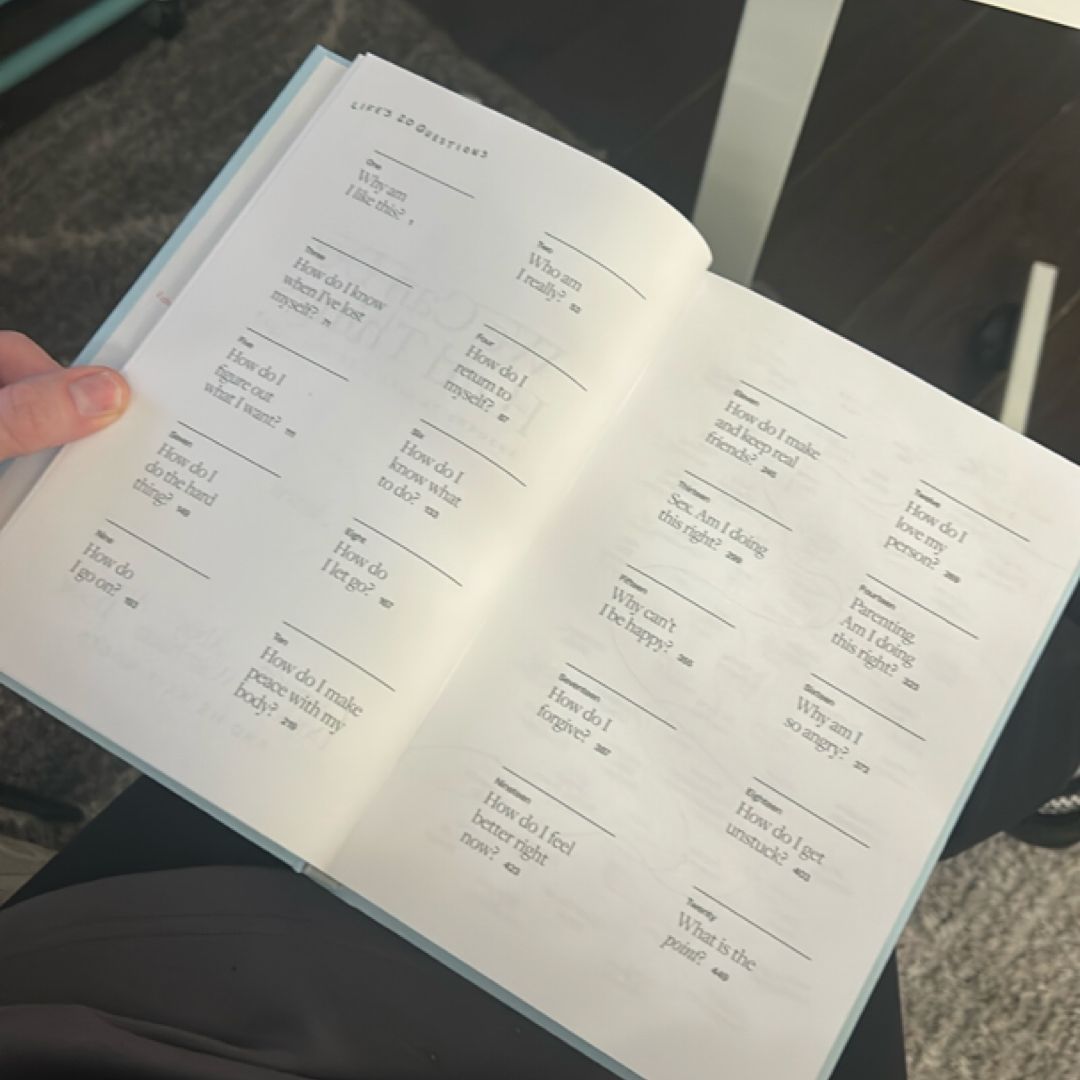 LIFE'S 20 QUESTIONS
One
Why am
I like this? 1
Two
Who am
I really? 53
Three
How do I know
when I've lost
myself? 71
Four
How do I
return to
myself? 87
Five
How do I
figure out
what I want? 111
Six
How do I
know what
to do? 133
Seven
How do I
do the hard
thing? 149
Eight
How do
I let go? 167
Nine
How do
I go on? 193
Ten
How do I make
peace with my
body? 219
Eleven
How do I make
and keep real
friends? 245
Twelve
How do I
love my
person? 269
Thirteen
Sex. Am I doing
this right? 299
Fourteen
Parenting.
Am I doing
this right? 323
Fifteen
Why can't
I be happy? 355
Sixteen
Why am I
so angry? 373
Seventeen
How do I
forgive? 387
Eighteen
How do I get
unstuck? 403
Nineteen
How do I feel
better right
now? 423
Twenty
What is the
point? 449